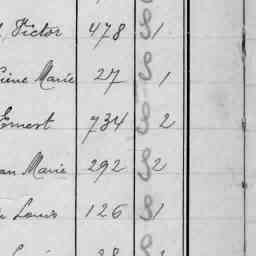 Victor 478 S 1
Marie 27 S 1
Ernest 734 S 2
Marie 292 S 2
Louis 126 S 1